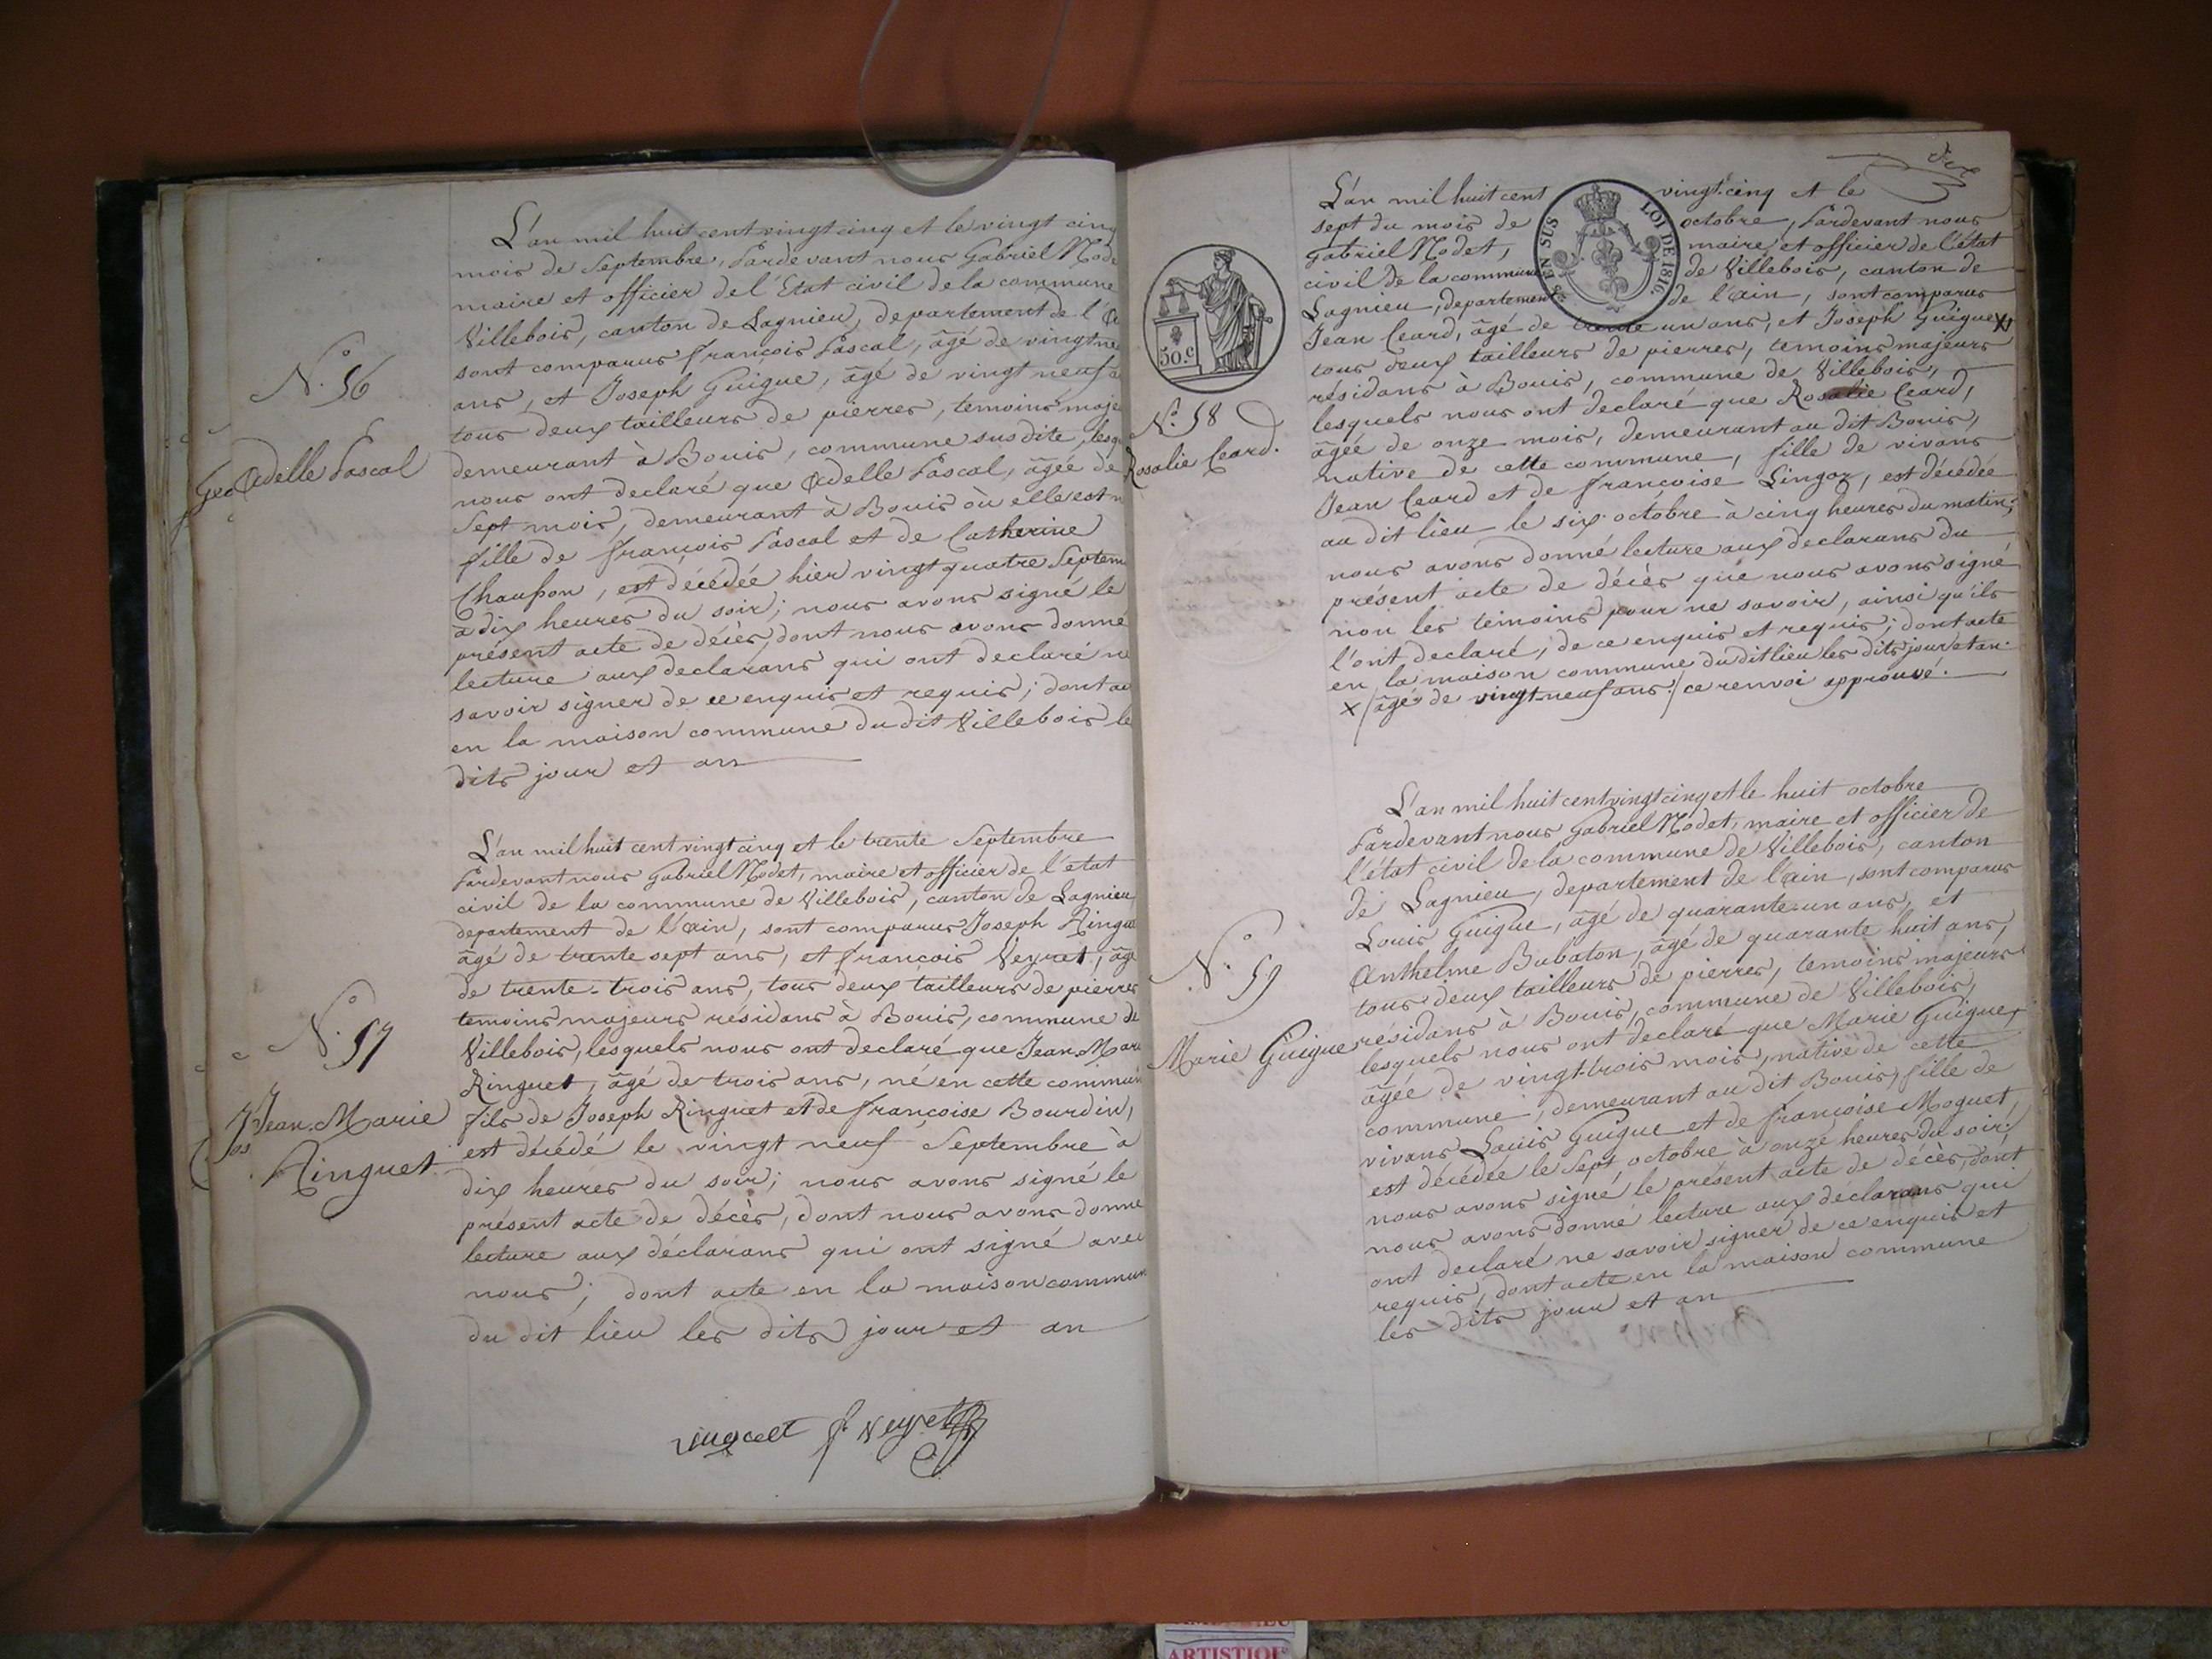 L'an mil huit cent vingt cinq et le vingt cinq
mois de Septembre, Pardevant nous Gabriel Mode
maire et officier de l'Etat civil de la commune
Villebois, canton de Lagnieu, departement de l'a
sont comparus françois Pascal, âgé de vingt ne
N.° 56
ans, et Joseph Guigue, âgé de vingt neuf a
tous deux tailleurs de pierres, temoins maje
Adelle Pascal
demeurant à Bouis, commune susdite, lesq
nous ont declaré que Adelle Pascal, âgée de
Sept mois, demeurant à Bouis où elle est n
fille de françois Pascal et de Catherine
Chausson, est décédée hier vingt quatre Septem
à dix heures du soir; nous avons signé le
présent acte de décès, dont nous avons donné
lecture aux declarans qui ont declaré ne
savoir signer de ce enquis et requis; dont ac
en la maison commune du dit Villebois le
dits jour et an
L'an mil huit cent vingt cinq et le trente Septembre
Pardevant nous Gabriel Modet, maire et officier de l'état
civil de la commune de Villebois, canton de Lagnieu
departement de l'ain, sont comparus Joseph Ringue
âgé de trente sept ans, et françois Veyret, âgé
de trente-trois ans, tous deux tailleurs de pierres
temoins majeurs résidans à Bouis, commune de
N.° 57
Villebois, lesquels nous ont declaré que Jean Mari
Ringuet, âgé de trois ans, né en cette commun
Jean Marie
Ringuet
fils de Joseph Ringuet et de françoise Bourdin,
est décédé le vingt neuf Septembre à
dix heures du soir; nous avons signé le
présent acte de décès, dont nous avons donné
lecture aux déclarans qui ont signé avec
nous; dont acte en la maison commun
du dit lieu les dits jour et an
ringuet f. Veyret
L'an mil huit cent vingt-cinq et le
sept du mois de octobre, Pardevant nous
Gabriel Modet, maire et officier de l'état
civil de la commune de Villebois, canton de
Lagnieu, departement de l'ain, sont comparus
EN SUS LOI DE 1816.
50.c
Jean Ceard, âgé de trente un ans, et Joseph Guigue X
tous deux tailleurs de pierres, temoins majeurs
résidans à Bouis, commune de Villebois,
N.° 58
Rosalie Ceard.
lesquels nous ont declaré que Rosalie Ceard,
âgée de onze mois, demeurant au dit Bouis,
native de cette commune, fille de vivans
Jean Ceard et de françoise Lingoz, est décédée
au dit lieu le six octobre à cinq heures du matin;
nous avons donné lecture aux declarans du
présent acte de décès que nous avons signé
non les témoins pour ne savoir, ainsi qu'ils
l'ont declaré, de ce enquis et requis; dont acte
en la maison commune du dit lieu les dits jour et an.
X/ âgé de vingt-neuf ans:/ ce renvoi approuvé.
L'an mil huit cent vingt cinq et le huit octobre
Pardevant nous Gabriel Modet, maire et officier de
l'état civil de la commune de Villebois, canton
de Lagnieu, departement de l'ain, sont comparus
Louis Guigue, âgé de quarante-un ans, et
Anthelme Babaton, âgé de quarante huit ans,
N.° 59
tous deux tailleurs de pierres, temoins majeurs
Marie Guigue
résidans à Bouis, commune de Villebois,
lesquels nous ont declaré que Marie Guigue,
âgée de vingt-trois mois, native de cette
commune, demeurant au dit Bouis, fille de
vivans Louis Guigue et de françoise Moguet,
est décédée le Sept octobre à onze heures du soir;
nous avons signé le présent acte de décès, dont
nous avons donné lecture aux declarans qui
ont declaré ne savoir signer de ce enquis et
requis, dont acte en la maison commune
les dits jour et an
ARTISTIQUE